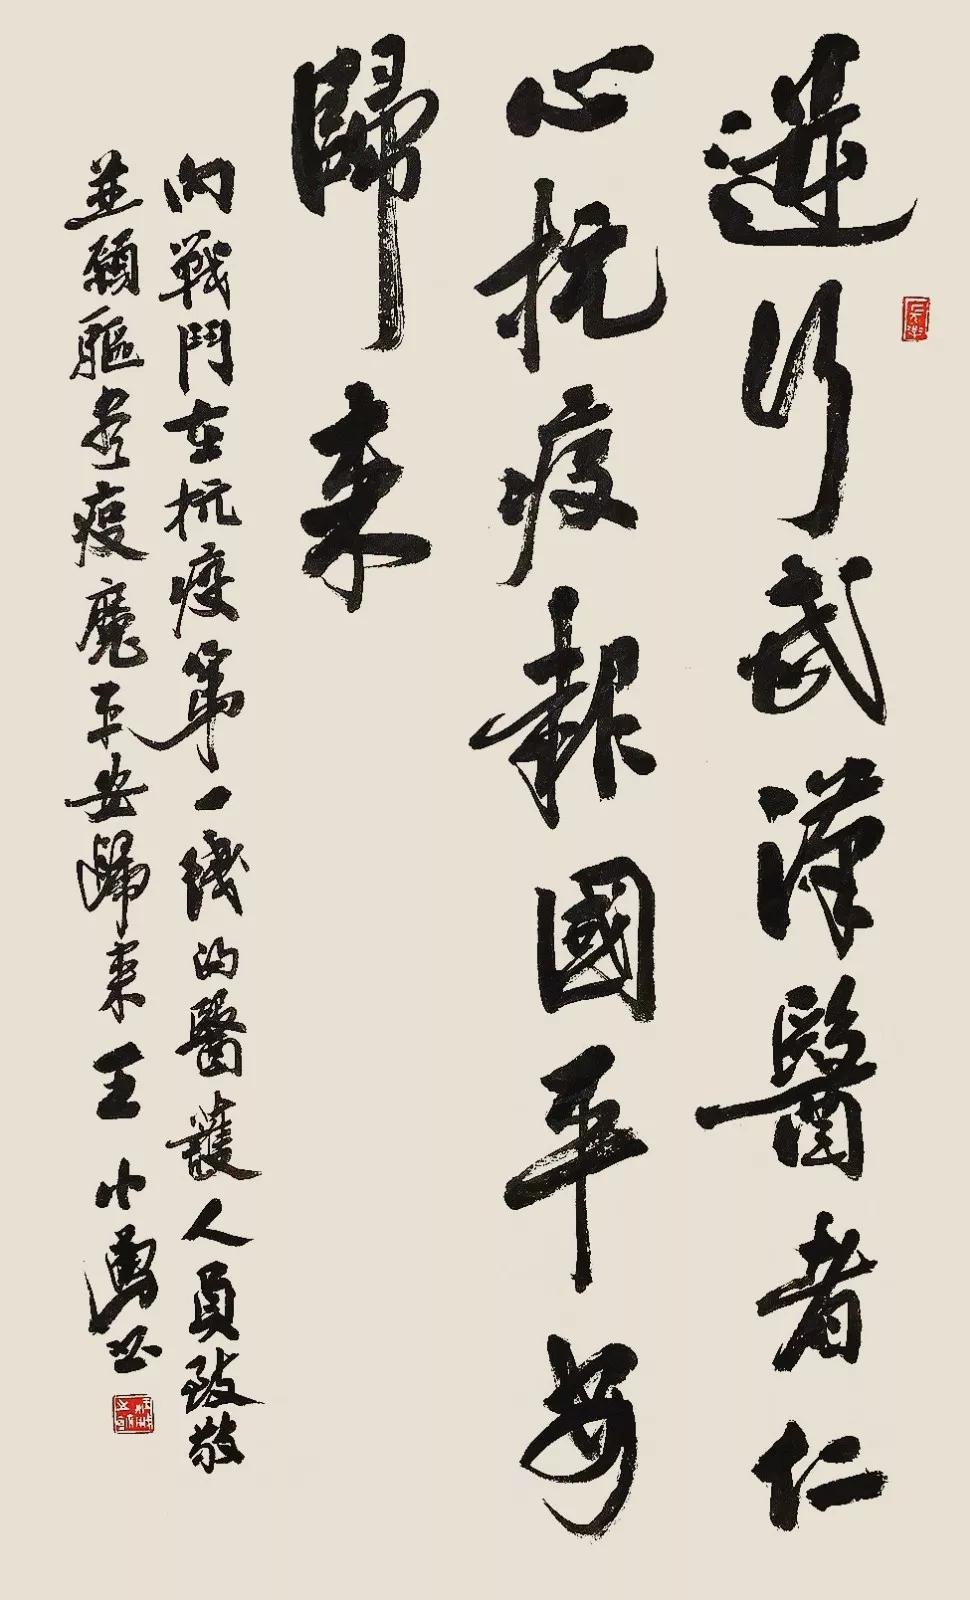 逆行武漢醫者仁
心抗疫報國平安
歸来
向戰鬥在抗疫第一线的醫護人員致敬
並願驅尽疫魔平安歸来 王小勇书